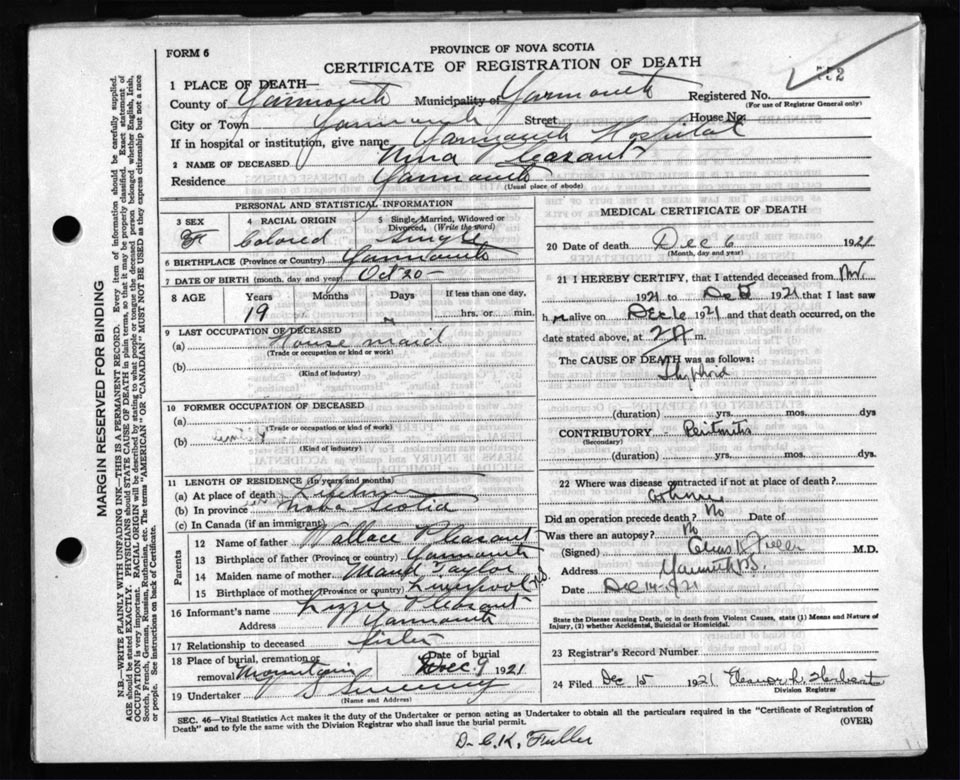 FORM 6
PROVINCE OF NOVA SCOTIA
CERTIFICATE OF REGISTRATION OF DEATH
552
1 PLACE OF DEATH—
County of Yarmouth Municipality of Yarmouth Registered No.
(For use of Registrar General only)
City or Town Yarmouth Street House No.
If in hospital or institution, give name Yarmouth Hospital
2 NAME OF DECEASED Nina Pleasant
Residence Yarmouth
(Usual place of abode)
PERSONAL AND STATISTICAL INFORMATION
3 SEX 4 RACIAL ORIGIN 5 Single, Married, Widowed or Divorced, (Write the word)
F Colored Single
6 BIRTHPLACE (Province or Country) Yarmouth
7 DATE OF BIRTH (month, day and year) Oct 20 -
8 AGE Years Months Days If less than one day,
19 hrs. or min.
9 LAST OCCUPATION OF DECEASED
(a) House maid
(Trade or occupation or kind or work)
(b)
(Kind of industry)
10 FORMER OCCUPATION OF DECEASED
(a)
(Trade or occupation or kind of work)
(b)
(Kind of industry)
11 LENGTH OF RESIDENCE (In years and months)
(a) At place of death
(b) In province Nova Scotia
(c) In Canada (if an immigrant)
Parents
12 Name of father Wallace Pleasant
13 Birthplace of father (Province or country) Yarmouth
14 Maiden name of mother Maud Taylor
15 Birthplace of mother (Province or country) Liverpool N.S.
16 Informant's name Lizzie Pleasant
Address Yarmouth
17 Relationship to deceased sister
18 Place of burial, cremation or removal Mountain Date of burial Dec 9 1921
19 Undertaker Sweeny
(Name and Address)
MEDICAL CERTIFICATE OF DEATH
20 Date of death Dec 6 1921
(Month, day and year)
21 I HEREBY CERTIFY, that I attended deceased from Nov.
1921 to Dec 5 1921 that I last saw
h alive on Dec 6 1921 and that death occurred, on the
date stated above, at 2 A m.
The CAUSE OF DEATH was as follows:
Thyphoid
(duration) yrs. mos. dys
CONTRIBUTORY
(Secondary)
(duration) yrs. mos. dys.
22 Where was disease contracted if not at place of death?
at home
Did an operation precede death? No Date of
Was there an autopsy? No
(Signed) Chas K. Fuller M.D.
Address Yarmouth N.S.
Date Dec 14 - 1921
State the Disease causing Death, or in death from Violent Causes, state (1) Means and Nature of Injury, (2) whether Accidental, Suicidal or Homicidal.
23 Registrar's Record Number
24 Filed Dec 15 1921 Eleanor L. Herbert
Division Registrar
SEC. 46—Vital Statistics Act makes it the duty of the Undertaker or person acting as Undertaker to obtain all the particulars required in the "Certificate of Registration of
Death" and to fyle the same with the Division Registrar who shall issue the burial permit. (OVER)
Dr C. K. Fuller
MARGIN RESERVED FOR BINDING
N.B.—WRITE PLAINLY WITH UNFADING INK—THIS IS A PERMANENT RECORD. Every item of information should be carefully supplied.
AGE should be stated EXACTLY. PHYSICIANS should STATE CAUSE OF DEATH in plain terms, so that it may be properly classified. Exact statement of
OCCUPATION is very important. RACIAL ORIGIN will be described by stating to what people or tongue the deceased person belonged whether English, Irish,
Scotch, French, German, Russian, Ruthenian, etc. The terms "AMERICAN" OR "CANADIAN" MUST NOT BE USED as they express citizenship but not a race
or people. See instructions on back of Certificate.